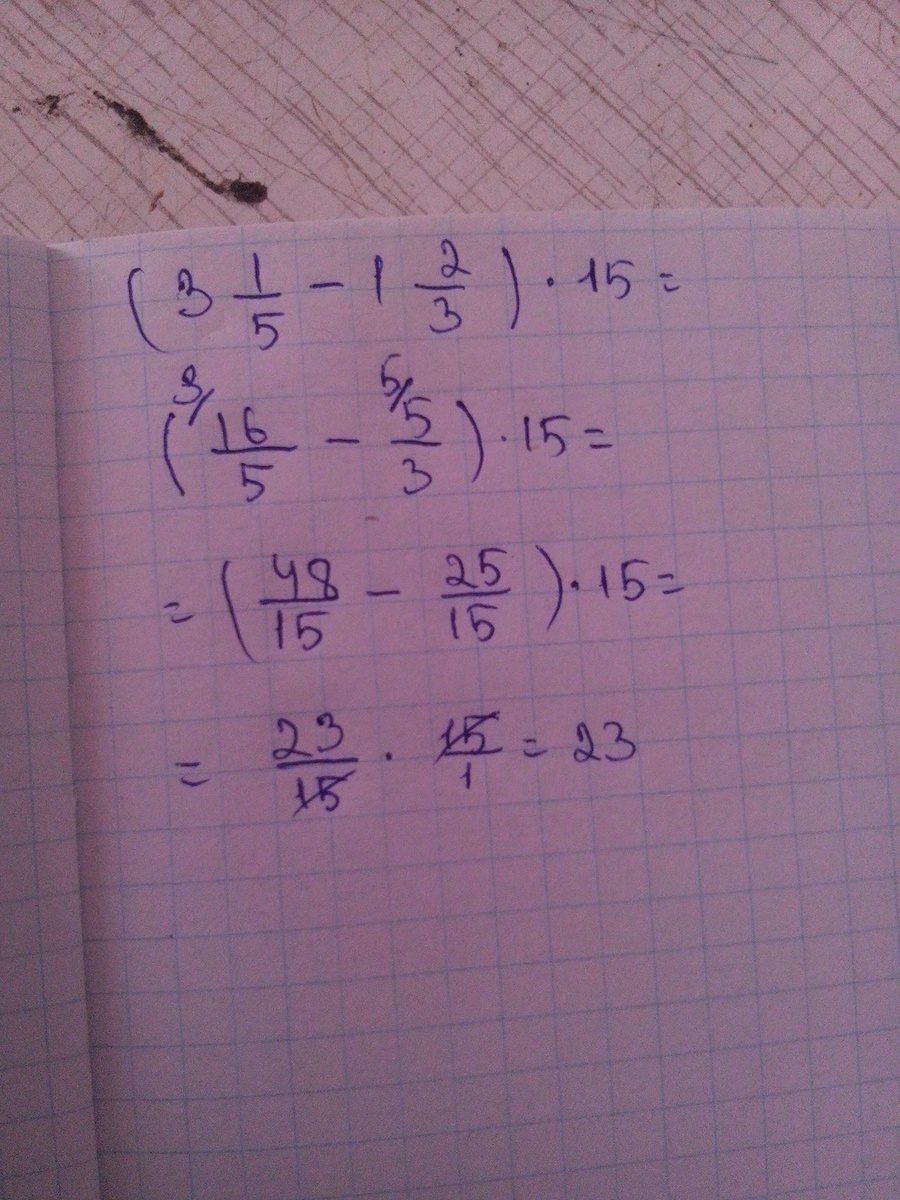 (3 1/5 − 1 2/3) · 15 =
(3/ 16/5 − 5/ 5/3) · 15 =
= (48/15 − 25/15) · 15 =
= 23/15 · 15/1 = 23